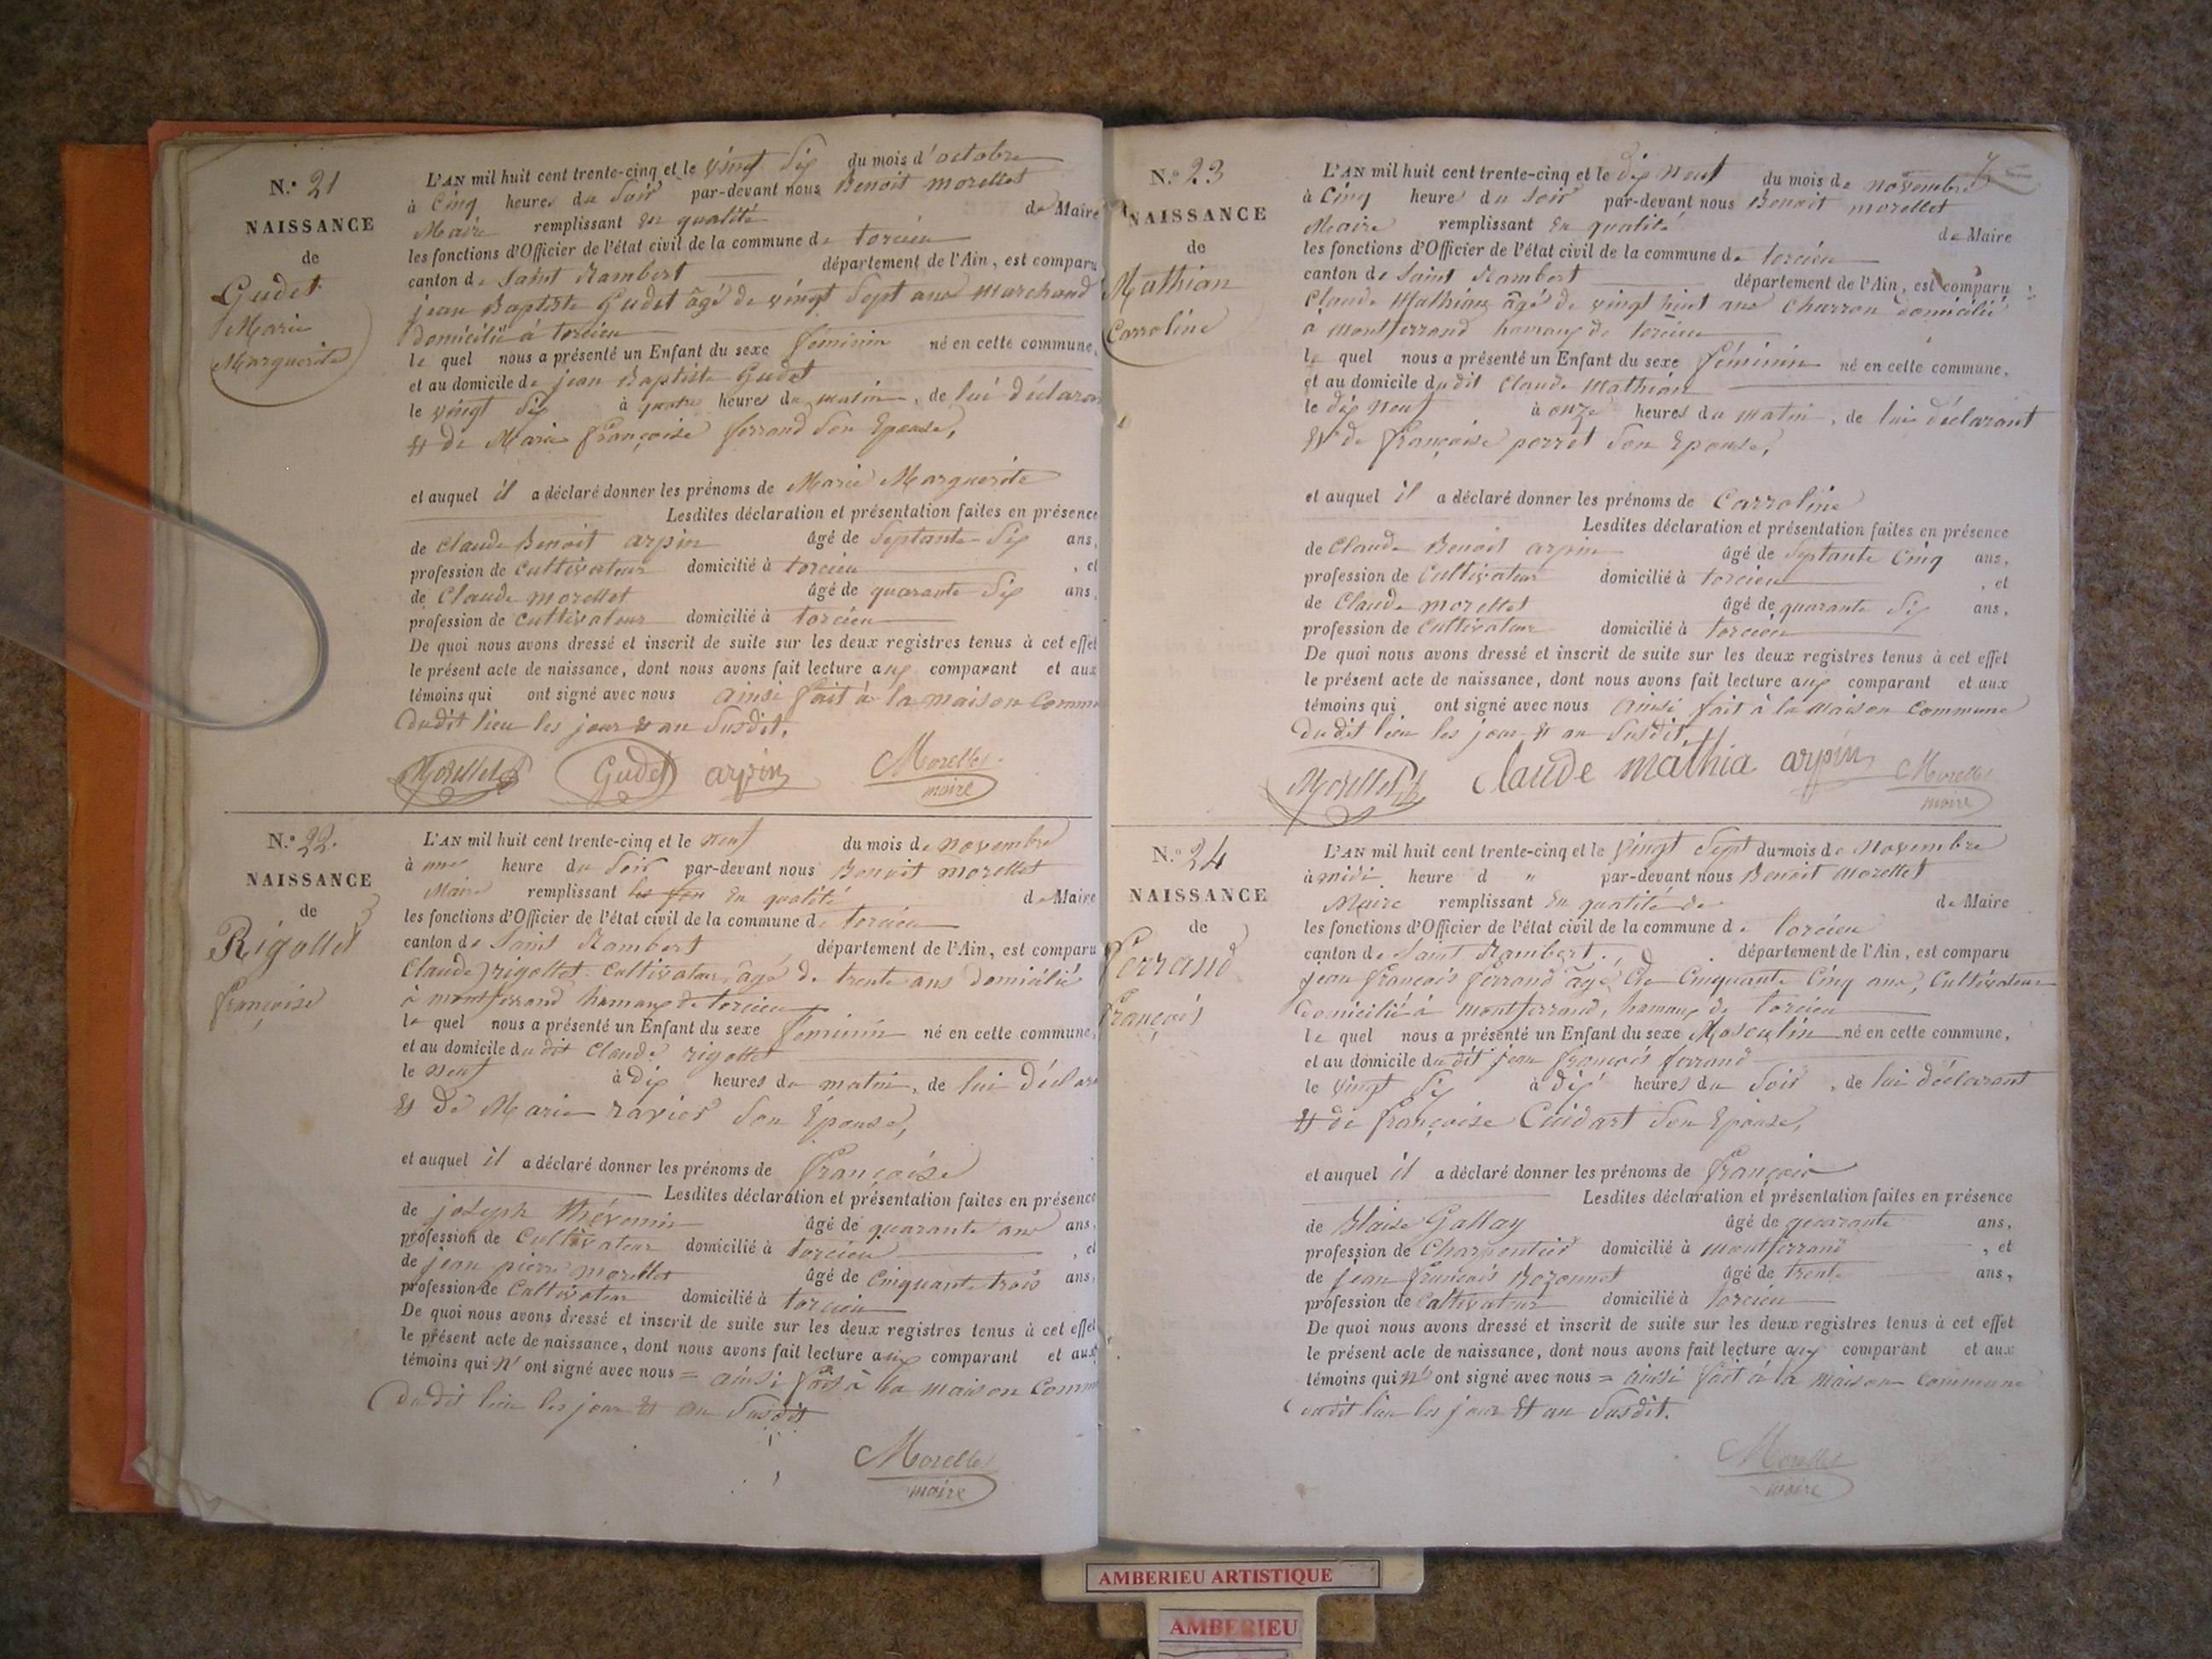 N.° 21
NAISSANCE
de
Gudet
Marie
Marguerite
L'AN mil huit cent trente-cinq et le vingt Six du mois d'octobre
à Cinq heures du Soir par-devant nous Benoit morellet
Maire remplissant En qualité de Maire
les fonctions d'Officier de l'état civil de la commune de torcieu
canton de Saint Rambert département de l'Ain, est comparu
jean Baptiste Gudet âgé de vingt Sept ans Marchand
domicilié à torcieu
le quel nous a présenté un Enfant du sexe féminin né en cette commune,
et au domicile de jean Baptiste Gudet
le vingt Six à quatre heures du matin, de lui déclaran
et de Marie françoise ferrand Son Epouse,
et auquel il a déclaré donner les prénoms de Marie Marguerite
Lesdites déclaration et présentation faites en présence
de Claude Benoit arpin âgé de Septante Six ans,
profession de Cultivateur domicilié à torcieu, et
de Claude morellet âgé de quarante Six ans,
profession de Cultivateur domicilié à torcieu
De quoi nous avons dressé et inscrit de suite sur les deux registres tenus à cet effet
le présent acte de naissance, dont nous avons fait lecture aux comparant et aux
témoins qui ont signé avec nous ainsi fait à la maison Comm
dudit lieu les jour et an Susdit.
Morellet Gudet arpin Morellet
maire
N.° 22.
NAISSANCE
de
Rigollet
françoise
L'AN mil huit cent trente-cinq et le neuf du mois de novembre
à une heure du Soir par-devant nous Benoit morellet
Maire remplissant En qualité de Maire
les fonctions d'Officier de l'état civil de la commune de torcieu
canton de Saint Rambert département de l'Ain, est comparu
Claude rigollet Cultivateur, âgé de trente ans domicilié
à montferrand hamaux de torcieu
le quel nous a présenté un Enfant du sexe féminin né en cette commune,
et au domicile du dit Claude rigollet
le neuf à dix heures du matin, de lui déclara
et de Marie ravier Son Epouse,
et auquel il a déclaré donner les prénoms de françoise
Lesdites déclaration et présentation faites en présence
de joseph thévenin âgé de quarante ans ans,
profession de Cultivateur domicilié à torcieu, et
de jean pierre morellet âgé de Cinquante trois ans,
profession de Cultivateur domicilié à torcieu
De quoi nous avons dressé et inscrit de suite sur les deux registres tenus à cet effet
le présent acte de naissance, dont nous avons fait lecture aux comparant et aux
témoins qui n'ont signé avec nous = ainsi fait à la maison Comm
dudit lieu les jour et an Susdit
Morellet
maire
N.° 23
NAISSANCE
de
Mathian
Carroline
L'AN mil huit cent trente-cinq et le dix neuf du mois de novembre
à Cinq heures du Soir par-devant nous Benoit morellet
Maire remplissant En qualité de Maire
les fonctions d'Officier de l'état civil de la commune de torcieu
canton de Saint Rambert département de l'Ain, est comparu
Claude Mathian âgé de vingt huit ans Charron domicilié
à Montferrand hamaux de torcieu
le quel nous a présenté un Enfant du sexe féminin né en cette commune,
et au domicile du dit Claude Mathian
le dix neuf à onze heures du matin, de lui déclarant
et de françoise perret Son Epouse,
et auquel il a déclaré donner les prénoms de Carroline
Lesdites déclaration et présentation faites en présence
de Claude Benoit arpin âgé de Septante Cinq ans,
profession de Cultivateur domicilié à torcieu, et
de Claude morellet âgé de quarante Six ans,
profession de Cultivateur domicilié à torcieu
De quoi nous avons dressé et inscrit de suite sur les deux registres tenus à cet effet
le présent acte de naissance, dont nous avons fait lecture aux comparant et aux
témoins qui ont signé avec nous ainsi fait à la Maison Commune
dudit lieu les jour et an Susdit,
Morellet Claude mathia arpin Morellet
maire
N.° 24
NAISSANCE
de
Ferrand
François
L'AN mil huit cent trente-cinq et le vingt Sept du mois de Novembre
à midi heure d " par-devant nous Benoit Morellet
Maire remplissant En qualité de de Maire
les fonctions d'Officier de l'état civil de la commune de torcieu
canton de Saint Rambert. département de l'Ain, est comparu
jean françois ferrand âgé de Cinquante Cinq ans, Cultivateur
domicilié à montferrand, hamaux de torcieu
le quel nous a présenté un Enfant du sexe Masculin né en cette commune,
et au domicile du dit jean françois ferrand
le vingt Six à dix heures du Soir, de lui déclarant
et de françoise Cuidart Son Epouse,
et auquel il a déclaré donner les prénoms de françois
Lesdites déclaration et présentation faites en présence
de Blaise Gallay âgé de quarante ans,
profession de Charpentier domicilié à Montferrand, et
de jean françois Bozonnet âgé de trente ans,
profession de Cultivateur domicilié à torcieu
De quoi nous avons dressé et inscrit de suite sur les deux registres tenus à cet effet
le présent acte de naissance, dont nous avons fait lecture aux comparant et aux
témoins qui n'ont signé avec nous = ainsi fait à la Maison Commune
dudit lieu les jour et an Susdit.
Morellet
maire
AMBERIEU ARTISTIQUE
AMBERIEU